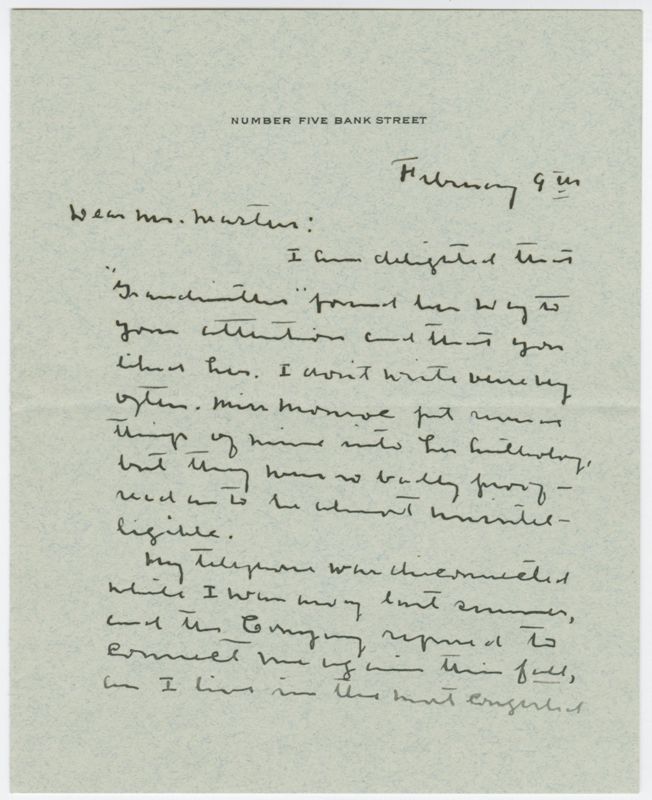 NUMBER FIVE BANK STREET
February 9th
Dear Mr. Masters:
I am delighted that
"Grandmither" found her way to
your attention and that you
liked her. I don't write verse very
often. Miss Monroe put some
things of mine into her anthology,
but they were so badly proof-
read as to be almost unintel-
ligible.
My telephone was disconnected
while I was away last summer,
and the Company refused to
connect me again this fall,
as I live in the most congested